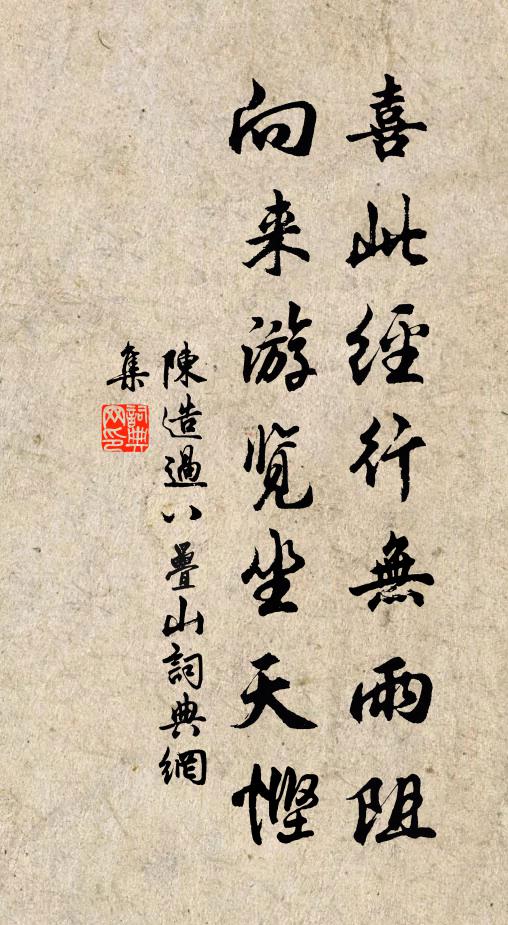 喜此經行無雨阻
向来游覧坐天慳
陳造過八疊山詞典網
集
詞典
网印